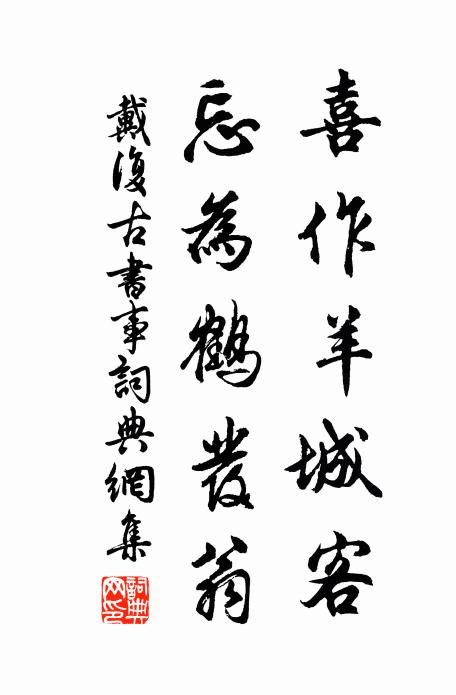 喜作羊城客
忘為鶴發翁
戴復古書事詞典網集
詞典網印